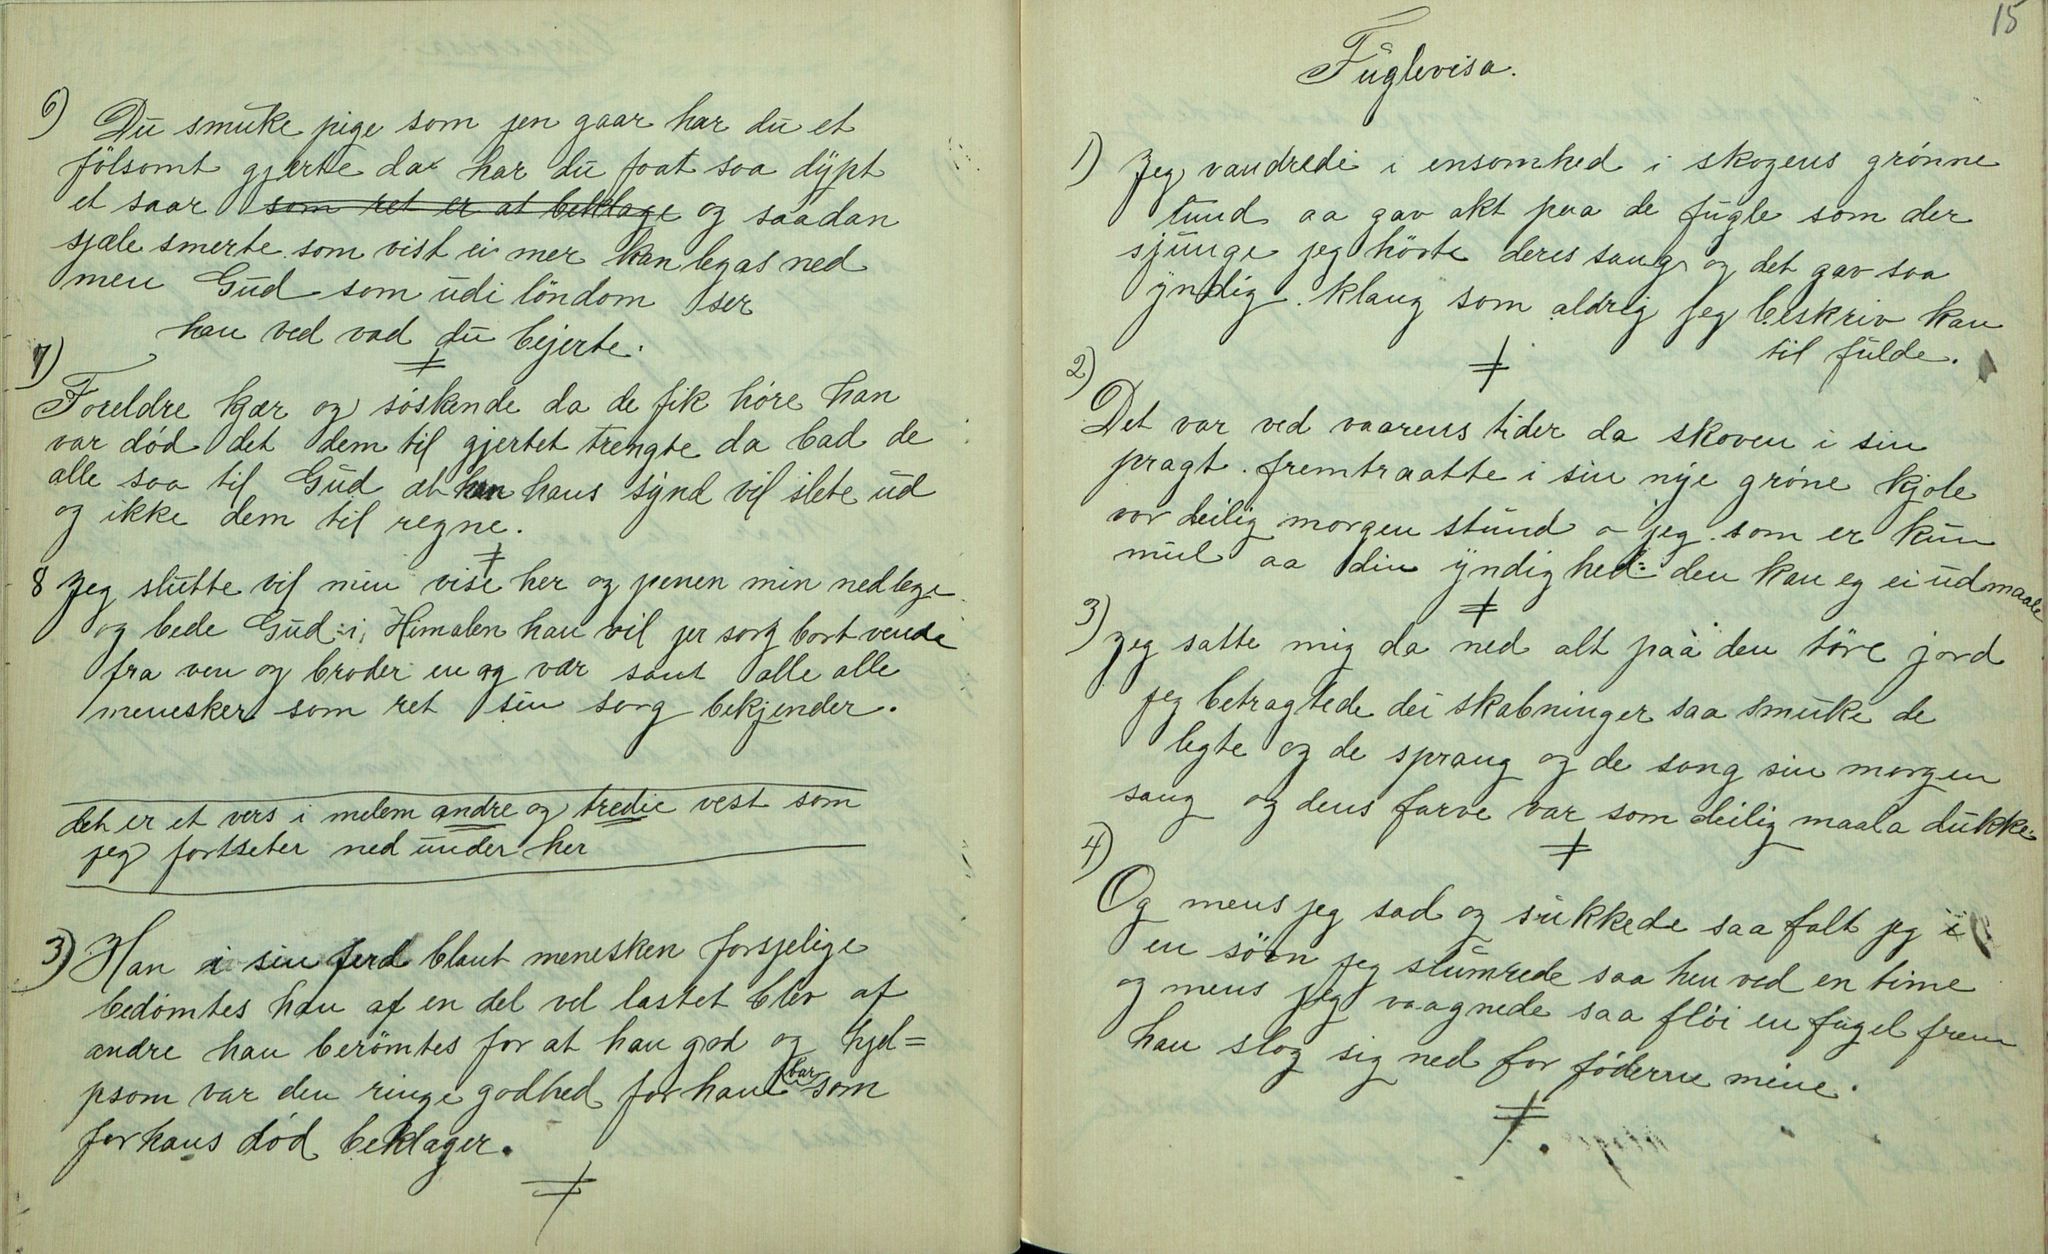 6) Du smuke pige som jen gaar har du et
fölsomt gjerte da har du faat saa dypt
et saar som ret er at beklage og saadan
sjæle smerte som vist ei mer kan legas ned
men Gud som udi löndom ser
han ved vad du bejerte.
7)
Foreldre kjær og søskende da de fik høre han
var død det dem til gjertet trengte da bad de
alle saa til Gud at han hans synd vil slete ud
og ikke dem til regne.
8 Jeg slutte vil min vise her og penen min nedlege
og bede Gud i Himalen han vil jer sorg bort vende
fra ven og broder en og vær samt alle alle
menesker som ret sin sorg bekjender.
det er et vers i melem andre og tredie vest som
jeg fortseter ned under her
3) Han i sin ferd blant menesken forsjelige
bedömtes han af en del vel lastet blev af
andre han berömtes for at han god og hjel=
psom var den ringe godhed for han bar som
for hans död beklager.
15
Fuglevisa.
1) Jeg vandrede i ensomhed i skogens grønne
lund aa gav akt paa de fugle som der
sjunge jeg hörte deres sang og det gav saa
yndig klang som aldrig jeg beskriv kan
til fulde.
2)
Det var ved vaarens tider da skoven i sin
pragt fremtraatte i sin nye gröne kjole
vor deilig morgen stund o jeg som er kun
mul aa din yndighed den kan eg ei udmaale
3)
Jeg satte mig da ned alt paa den töre jord
jeg betragtede dei skabninger saa smuke de
legte og de sprang og de sang sin morgen
sang og dens farve var som deilig maala dukke.
4)
Og mens jeg sad og sukkede saa falt jeg i
en sövn jeg slumrede saa hen ved en time
og mens jeg vaagnede saa flöi en fugel frem
han slog sig ned for föderne mine.